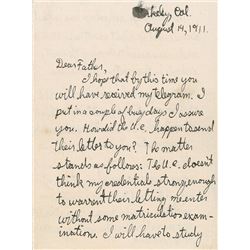 Berkeley, Cal.
August 14, 1911.
Dear Father,
I hope that by this time you
will have received my telegram. I
put in a couple of busy days I assure
you. How did the U.C. happen to send
their letter to you? The matter
stands as follows: The U.C. doesn't
think my credentials strong enough
to warrent their letting me enter
without some matriculation exam-
ination. I will have to study